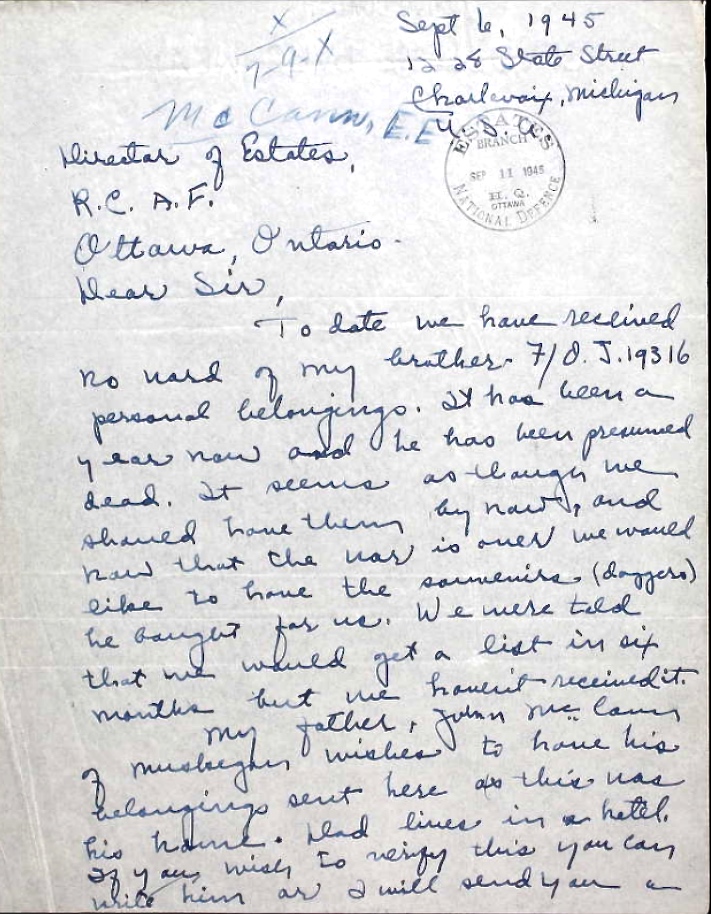 Sept 6, 1945
1228 State Street
Charlevoix, Michigan
U. S. A.
X
7-9-X
McCann, E.E
ESTATES
BRANCH
SEP 11 1945
H. Q.
OTTAWA
NATIONAL DEFENCE
Director of Estates,
R.C. A.F.
Ottawa, Ontario.
Dear Sir,
To date we have received
no word of my brother F/O. J.19316
personal belongings. It has been a
year now and he has been presumed
dead. It seems as though we
should have them by now, and
now that the war is over we would
like to have the souvenirs (daggers)
he bought for us. We were told
that we would get a list in six
months but we haven't received it.
My father, John McCann
of Muskegon wishes to have his
belongings sent here as this was
his home. Dad lives in a hotel.
If you wish to verify this you can
write him or I will send you a